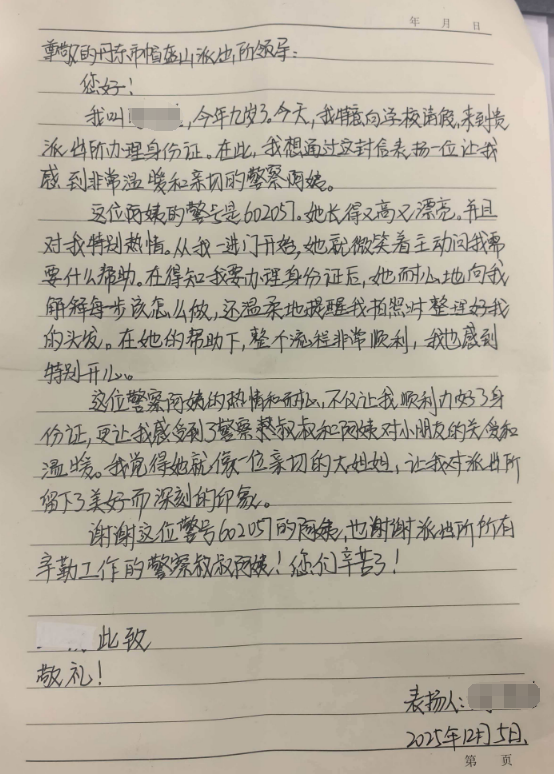 年 月 日
尊敬的丹东市帽盔山派出所领导:
您好!
我叫，今年九岁了。今天，我特意向学校请假，来到贵
派出所办理身份证。在此，我想通过这封信表扬一位让我
感到非常温暖和亲切的警察阿姨。
这位阿姨的警号是602057。她长得又高又漂亮。并且
对我特别热情。从我一进门开始，她就微笑着主动问我需
要什么帮助。在得知我要办理身份证后，她耐心地向我
解释每步该怎么做，还温柔地提醒我拍照时整理好我
的头发。在她的帮助下，整个流程非常顺利，我也感到
特别开心。
这位警察阿姨的热情和耐心，不仅让我顺利办好了身
份证，更让我感受到了警察叔叔和阿姨对小朋友的关爱和
温暖。我觉得她就像一位亲切的大姐姐，让我对派出所
留下了美好而深刻的印象。
谢谢这位警号602057的阿姨，也谢谢派出所所有
辛勤工作的警察叔叔阿姨！您们辛苦了！
此致
敬礼！
表扬人:
2025年12月5日、
第 页